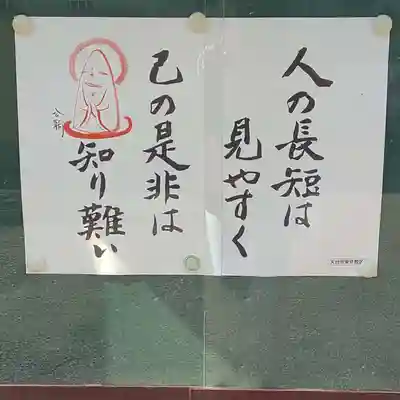 人の長短は
見やすく
己の是非は
知り難い
合掌